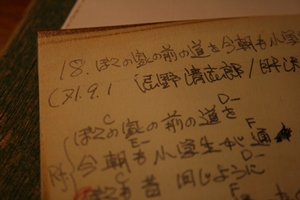 18. ぼくの家の前の道を今朝も小学
('71.9.1 忌野清志郎/肝沢
C
ぼくの家の前の道を
E- D- F
今朝も小学生が通
C D-
ぼくも昔 同じように